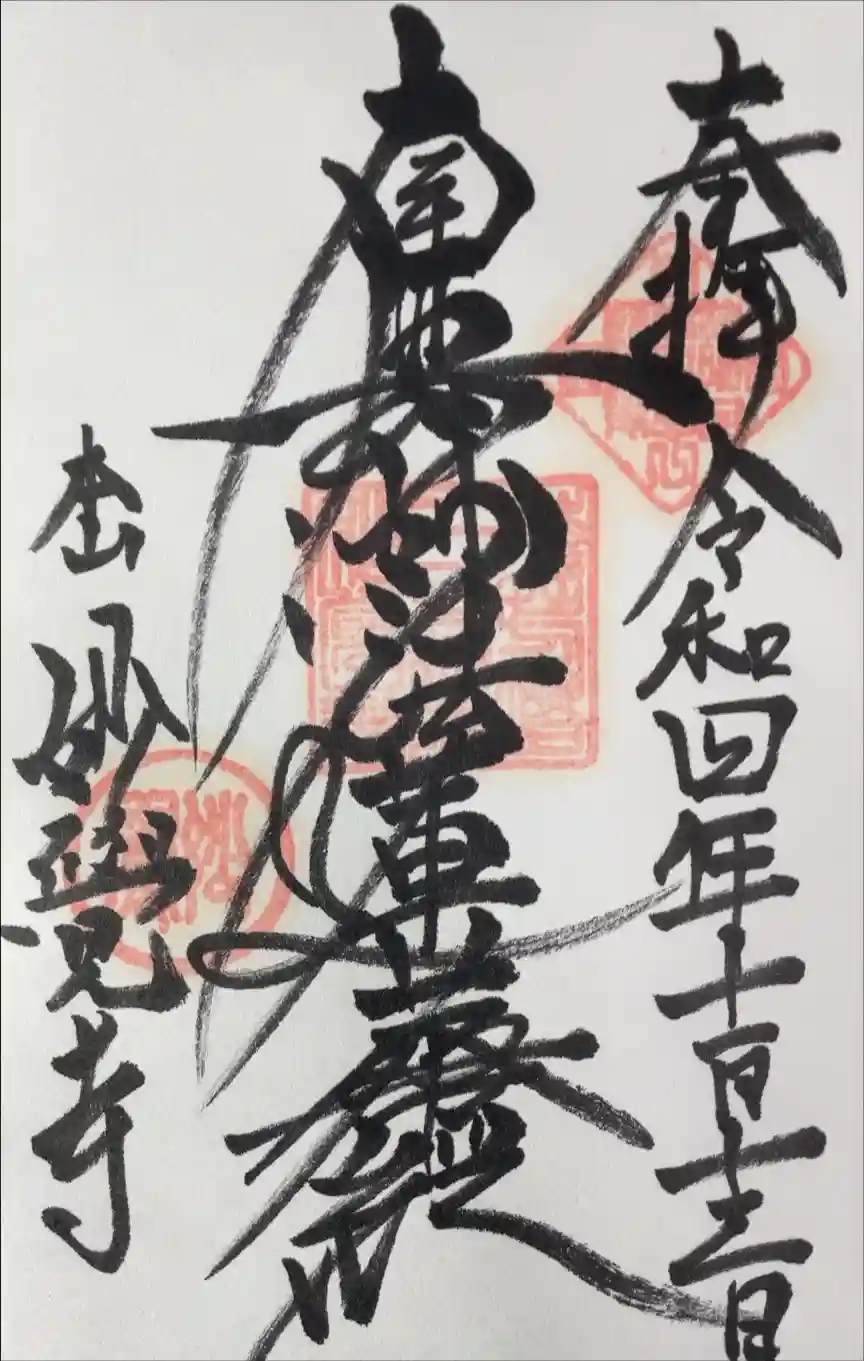 奉拝 令和四年十一月十二日
南無妙法蓮華経
本山 妙覺寺